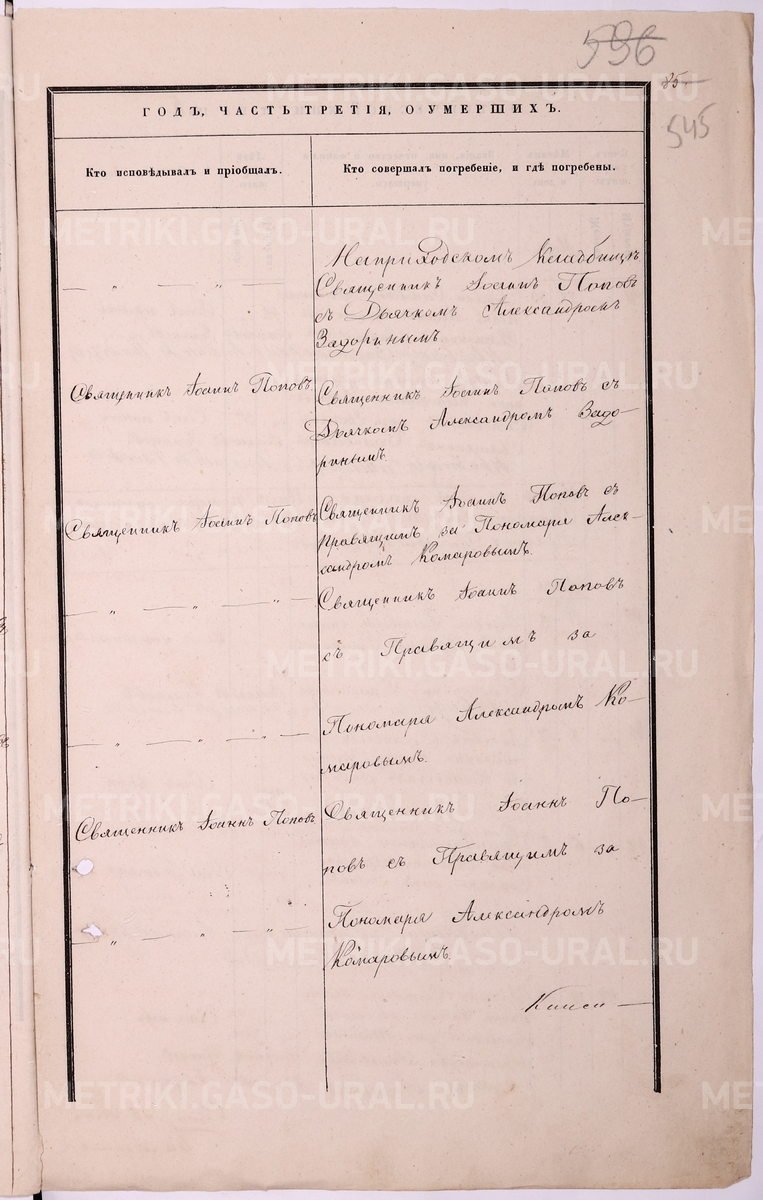 596
85
545
ГОДЪ, ЧАСТЬ ТРЕТІЯ, О УМЕРШИХЪ.
Кто исповѣдывалъ и пріобщалъ.
Кто совершалъ погребеніе, и гдѣ погребены.
На приходскомъ Кладбищѣ
— „ — „ —
Священникъ Іоаннъ Поповъ
съ Дьячкомъ Александромъ
Задоринымъ.
Священникъ Іоаннъ Поповъ.
Священникъ Іоаннъ Поповъ съ
Дьячкомъ Александромъ Задо-
ринымъ.
Священникъ Іоаннъ Поповъ
Священникъ Іоаннъ Поповъ съ
Правящимъ за Пономаря Алек-
сандромъ Комаровымъ.
— „ — „ — „ —
Священникъ Іоаннъ Поповъ
съ Правящимъ за
— „ — „ — „ —
Пономаря Александромъ Ко-
маровымъ.
Священникъ Іоаннъ Поповъ.
Священникъ Іоаннъ По-
повъ съ Правящимъ за
— „ — „ — „ —
Пономаря Александромъ
Комаровымъ.
METRIKI.GASO-URAL.RU